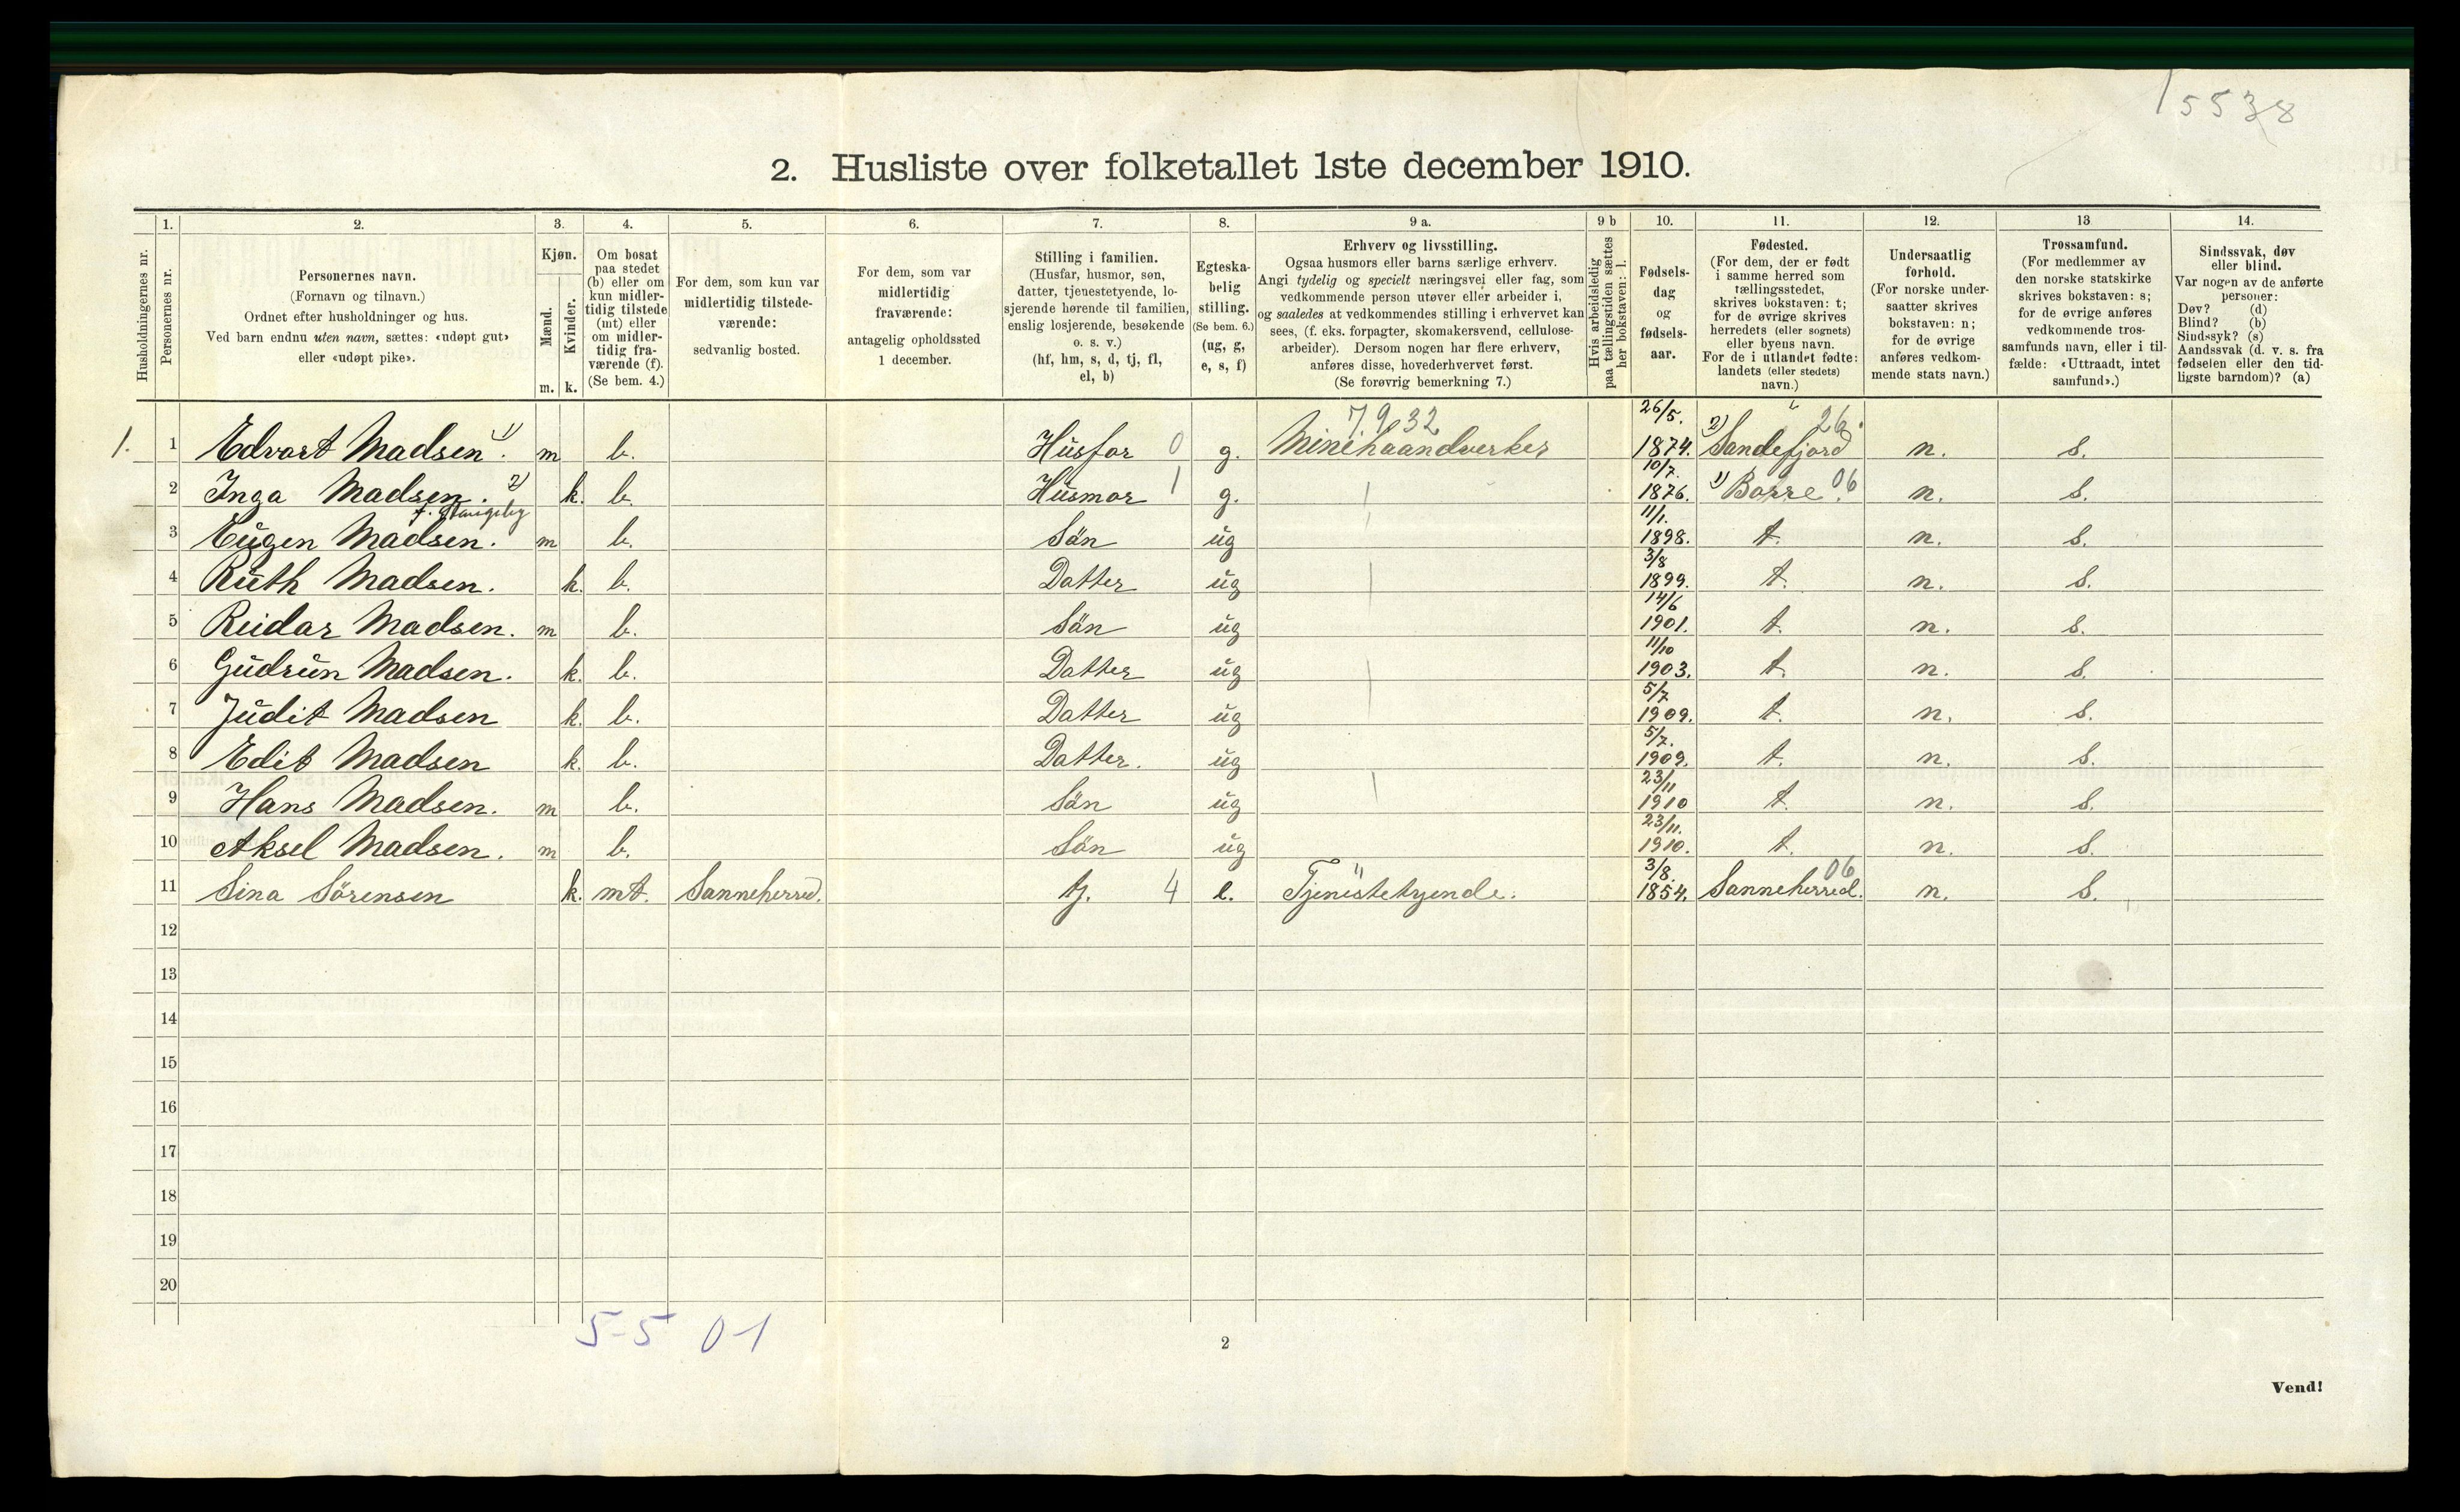 15538
2. Husliste over folketallet 1ste december 1910.
Husholdningernes nr.
1. Personernes nr.
2. Personernes navn.
(Fornavn og tilnavn.)
Ordnet efter husholdninger og hus.
Ved barn endnu uten navn, sættes: «udøpt gut»
eller «udøpt pike».
3. Kjøn.
Mænd. m.
Kvinder. k.
4. Om bosat
paa stedet
(b) eller om
kun midler-
tidig tilstede
(mt) eller
om midler-
tidig fra-
værende (f).
(Se bem. 4.)
5. For dem, som kun var
midlertidig tilstede-
værende:
sedvanlig bosted.
6. For dem, som var
midlertidig
fraværende:
antagelig opholdssted
1 december.
7. Stilling i familien.
(Husfar, husmor, søn,
datter, tjenestetyende, lo-
sjerende hørende til familien,
enslig losjerende, besøkende
o. s. v.)
(hf, hm, s, d, tj, fl,
el, b)
8. Egteska-
belig
stilling.
(Se bem. 6.)
(ug, g,
e, s, f)
9 a. Erhverv og livsstilling.
Ogsaa husmors eller barns særlige erhverv.
Angi tydelig og specielt næringsvei eller fag, som
vedkommende person utøver eller arbeider i,
og saaledes at vedkommendes stilling i erhvervet kan
sees, (f. eks. forpagter, skomakersvend, cellulose-
arbeider). Dersom nogen har flere erhverv,
anføres disse, hovederhvervet først.
(Se forøvrig bemerkning 7.)
9 b Hvis arbeidsledig
paa tællingstiden sættes
her bokstaven: l.
10. Fødsels-
dag
og
fødsels-
aar.
11. Fødested.
(For dem, der er født
i samme herred som
tællingsstedet,
skrives bokstaven: t;
for de øvrige skrives
herredets (eller sognets)
eller byens navn.
For de i utlandet fødte:
landets (eller stedets)
navn.)
12. Undersaatlig
forhold.
(For norske under-
saatter skrives
bokstaven: n;
for de øvrige
anføres vedkom-
mende stats navn.)
13 Trossamfund.
(For medlemmer av
den norske statskirke
skrives bokstaven: s;
for de øvrige anføres
vedkommende tros-
samfunds navn, eller i til-
fælde: «Uttraadt, intet
samfund».)
14. Sindssvak, døv
eller blind.
Var nogen av de anførte
personer:
Døv? (d)
Blind? (b)
Sindssyk? (s)
Aandssvak (d. v. s. fra
fødselen eller den tid-
ligste barndom)? (a)
7.9.32 26/5. 2) 26.
1. 1 Edvart Madsen 1). m b. Husfar 0 g. Minehaandverker 1874. Sandefjord n. s.
2 Inga Madsen. 2) k. b. Husmor 1 g. 10/7. 1876. 1) Borre. 06 n. s.
3 Eugen Madsen. m b. Sön ug 11/1. 1898. t. n. s.
4 Ruth Madsen. k. b. Datter ug 3/8 1899. t. n. s.
5 Reidar Madsen. m b. Sön ug 14/6 1901. t. n. s.
6 Gudrun Madsen. k. b. Datter ug 11/10 1903. t. n. s.
7 Judit Madsen k. b. Datter ug 5/7 1909. t. n. s.
8 Edit Madsen k. b. Datter. ug 5/7. 1909. t. n. s.
9 Hans Madsen. m b. Sön ug 23/11 1910 t. n. s.
10 Aksel Madsen. m b. Sön ug 23/11. 1910. t. n. s.
11 Sina Sörensen k. mt. Sanneherred. tj. 4 e. Tjenistetyende. 3/8. 1854. Sanneherred. 06 n. s.
12
13
14
15
16
17
18
19
20
5-5 01
2
Vend!